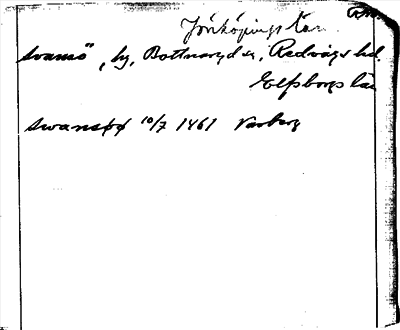 Jönköpings län
Svansö, by, Bottnaryd sn, Redvägs hd.
Elfsborgs län
Swansöö 10/7 1461 Varberg